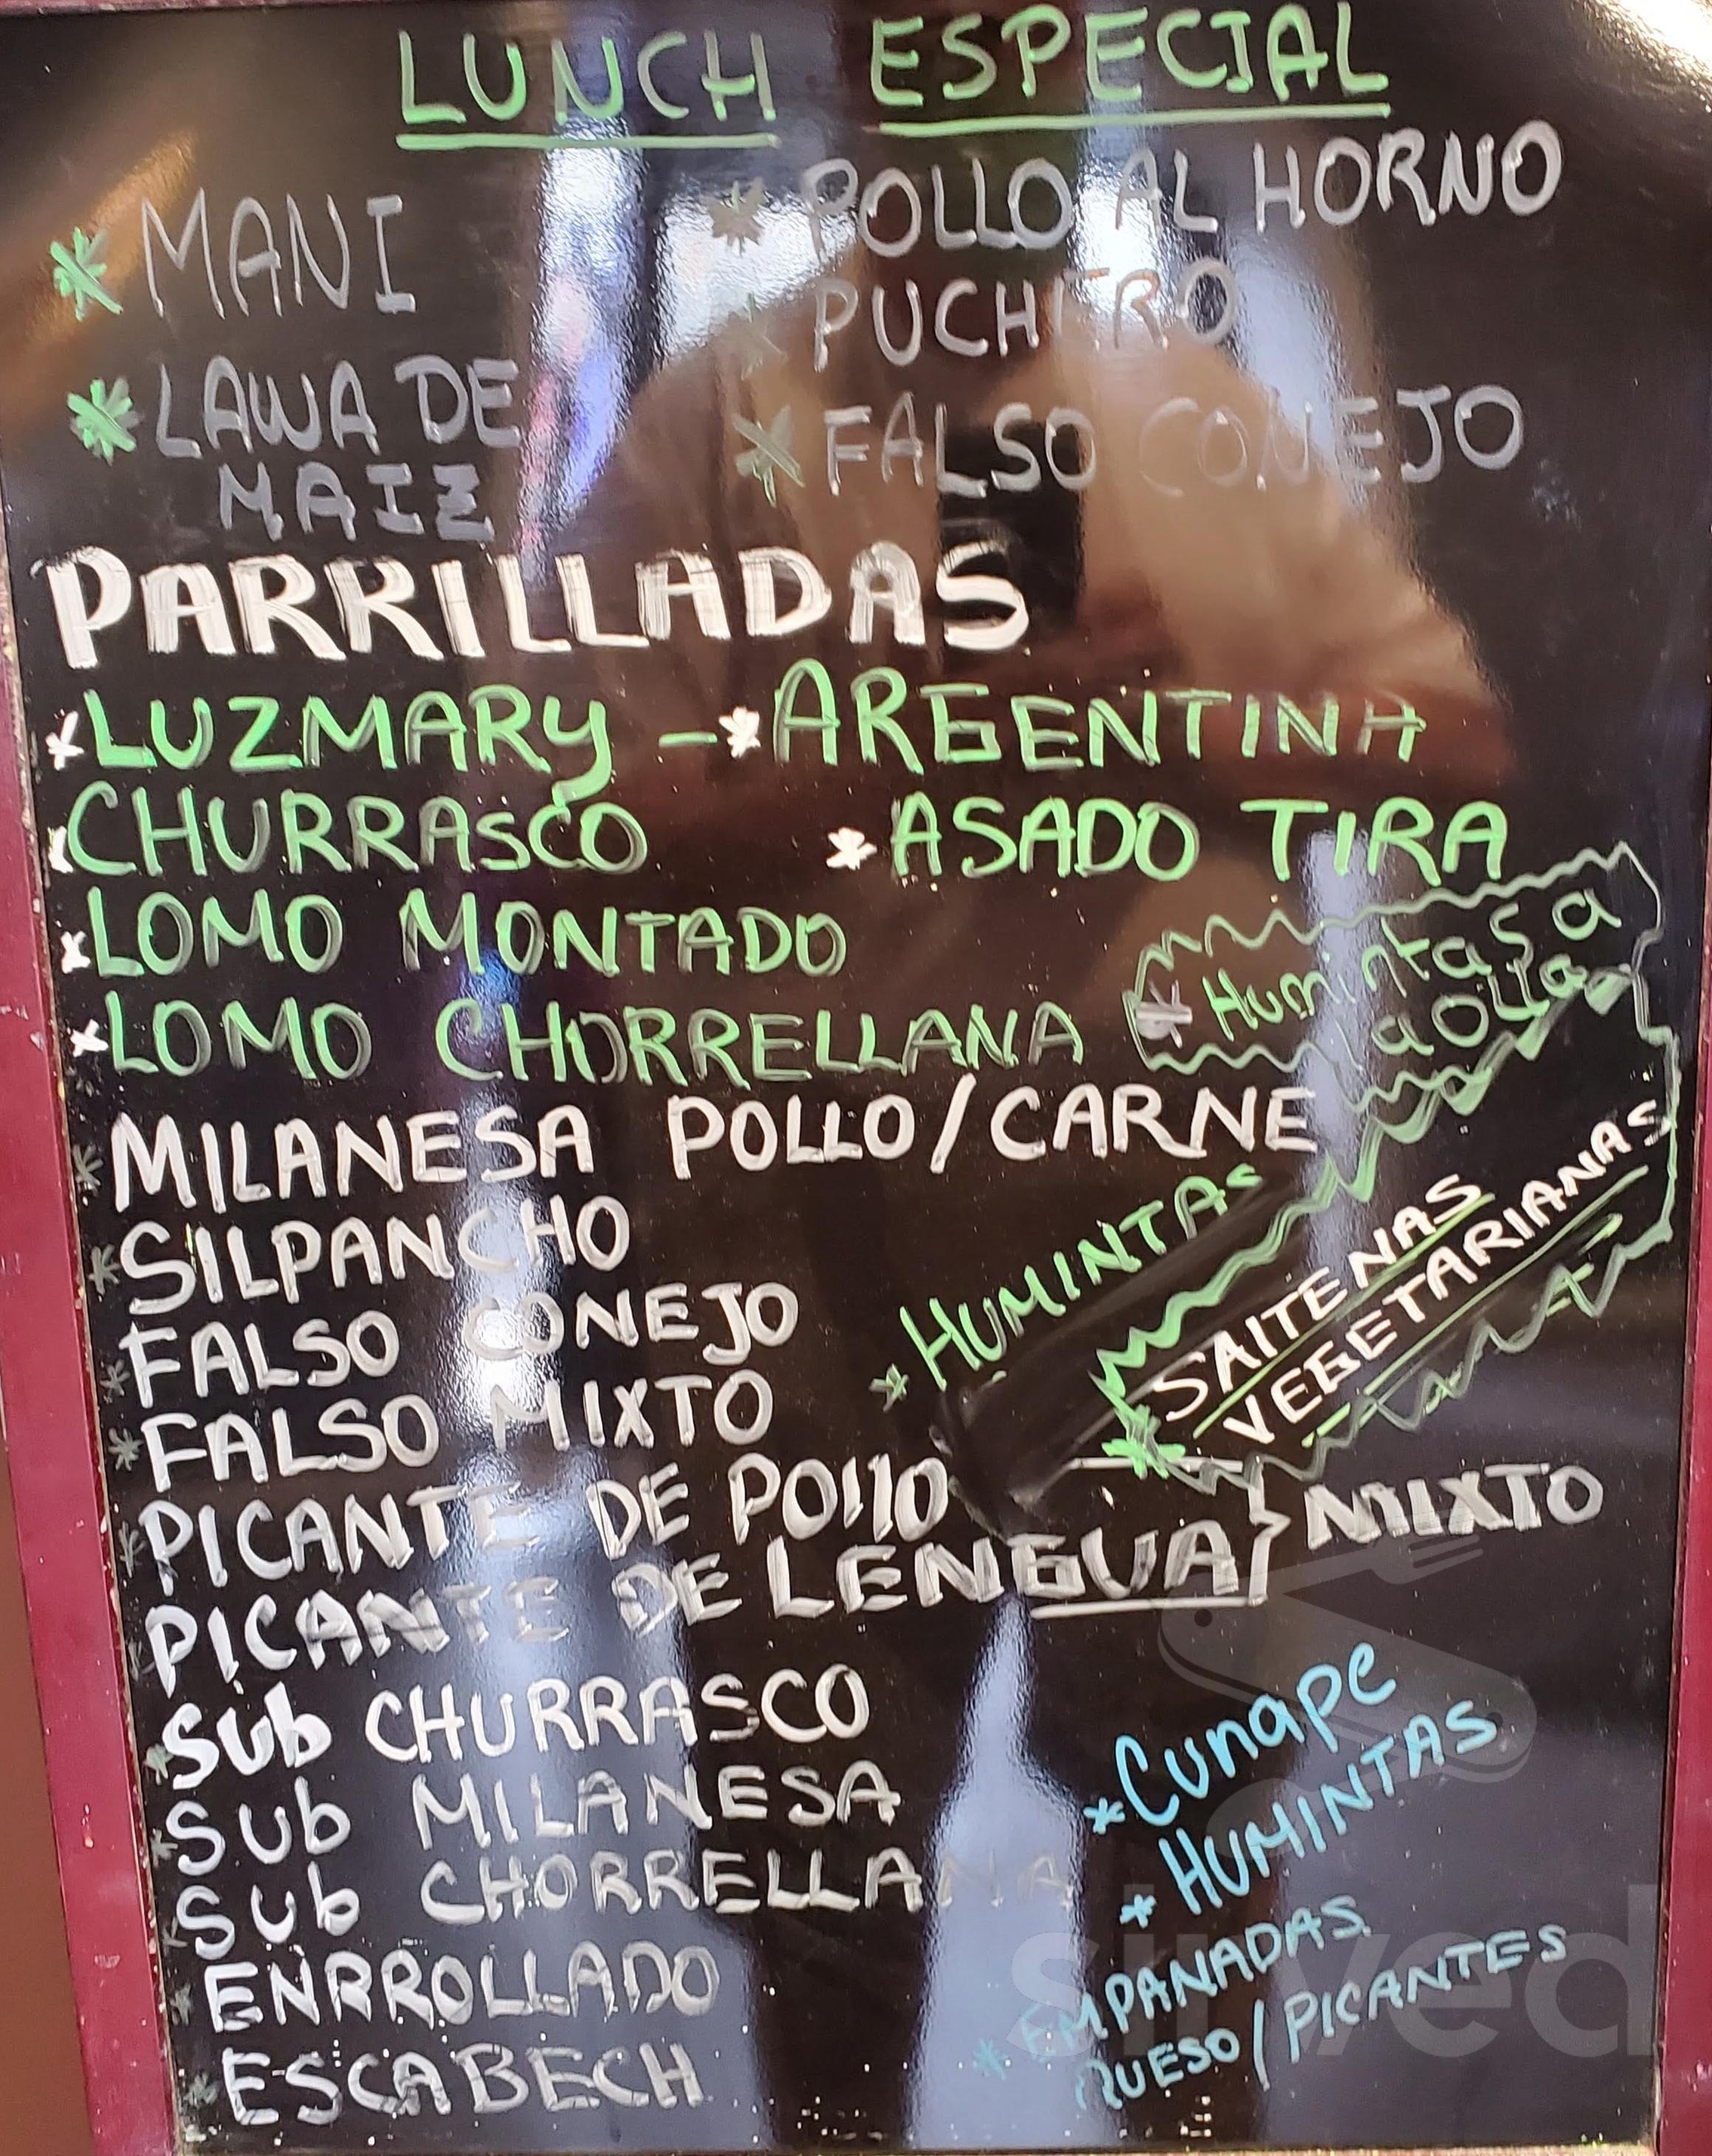 LUNCH ESPECIAL
* MANI
* LAWA DE
MAIZ
* POLLO AL HORNO
* PUCHERO
* FALSO CONEJO
PARRILLADAS
* LUZMARY - * ARGENTINA
* CHURRASCO * ASADO TIRA
* LOMO MONTADO
* LOMO CHORRELLANA
* Humintas a
la olla
* MILANESA POLLO/CARNE
* SILPANCHO
* FALSO CONEJO
* FALSO MIXTO
* HUMINTAS
* SAITENAS
VEGETARIANAS
* PICANTE DE POllO
* PICANTE DE LENGUA } MIXTO
* Sub CHURRASCO
* Sub MILANESA
* Sub CHORRELLANA
* ENRROLLADO
* ESCABECH
* Cunape
* HUMINTAS
* EMPANADAS
QUESO/PICANTES
sirved